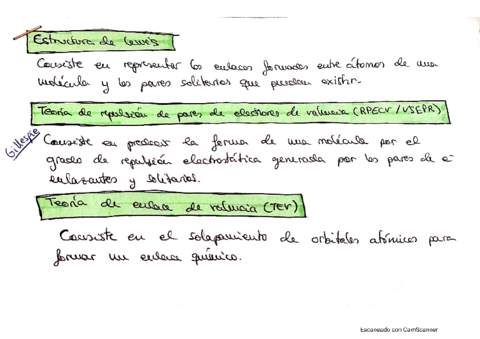 Estructura de Lewis
Consiste en representar los enlaces formados entre átomos de una
molécula y los pares solitarios que puedan existir.
Teoría de repulsión de pares de electrones de valencia (RPECV / VSEPR)
Gillespie
Consiste en predecir la forma de una molécula por el
grado de repulsión electrostática generada por los pares de e-
enlazantes y solitarios.
Teoría de enlace de valencia (TEV)
Consiste en el solapamiento de orbitales atómicos para
formar un enlace químico.
Escaneado con CamScanner